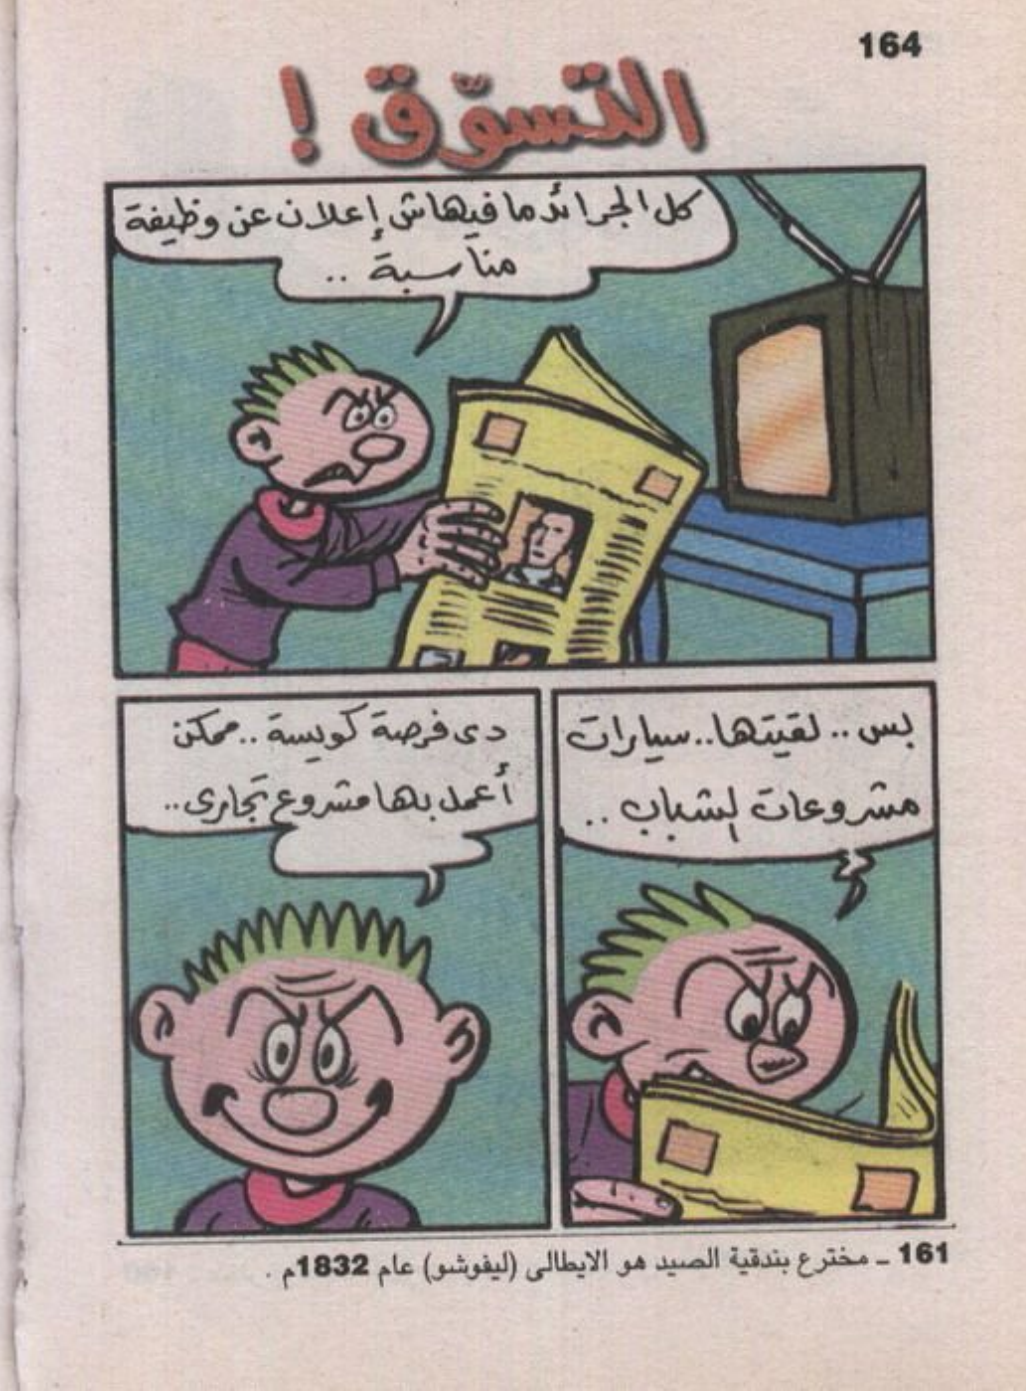 164
التسوّق !
كل الجرائد ما فيهاش إعلان عن وظيفة
مناسبة ..
بس .. لقيتها .. سيارات
مشروعات لشباب ..
دى فرصة كويسة .. ممكن
أعمل بها مشروع تجارى ..
161 ـ مخترع بندقية الصيد هو الايطالى (ليفوشو) عام 1832م .